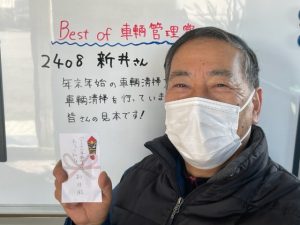 Best of 車輌管理
2408 新井さん
年末年始の車輌清掃
車輌清掃を行っていま
皆さんの見本です!